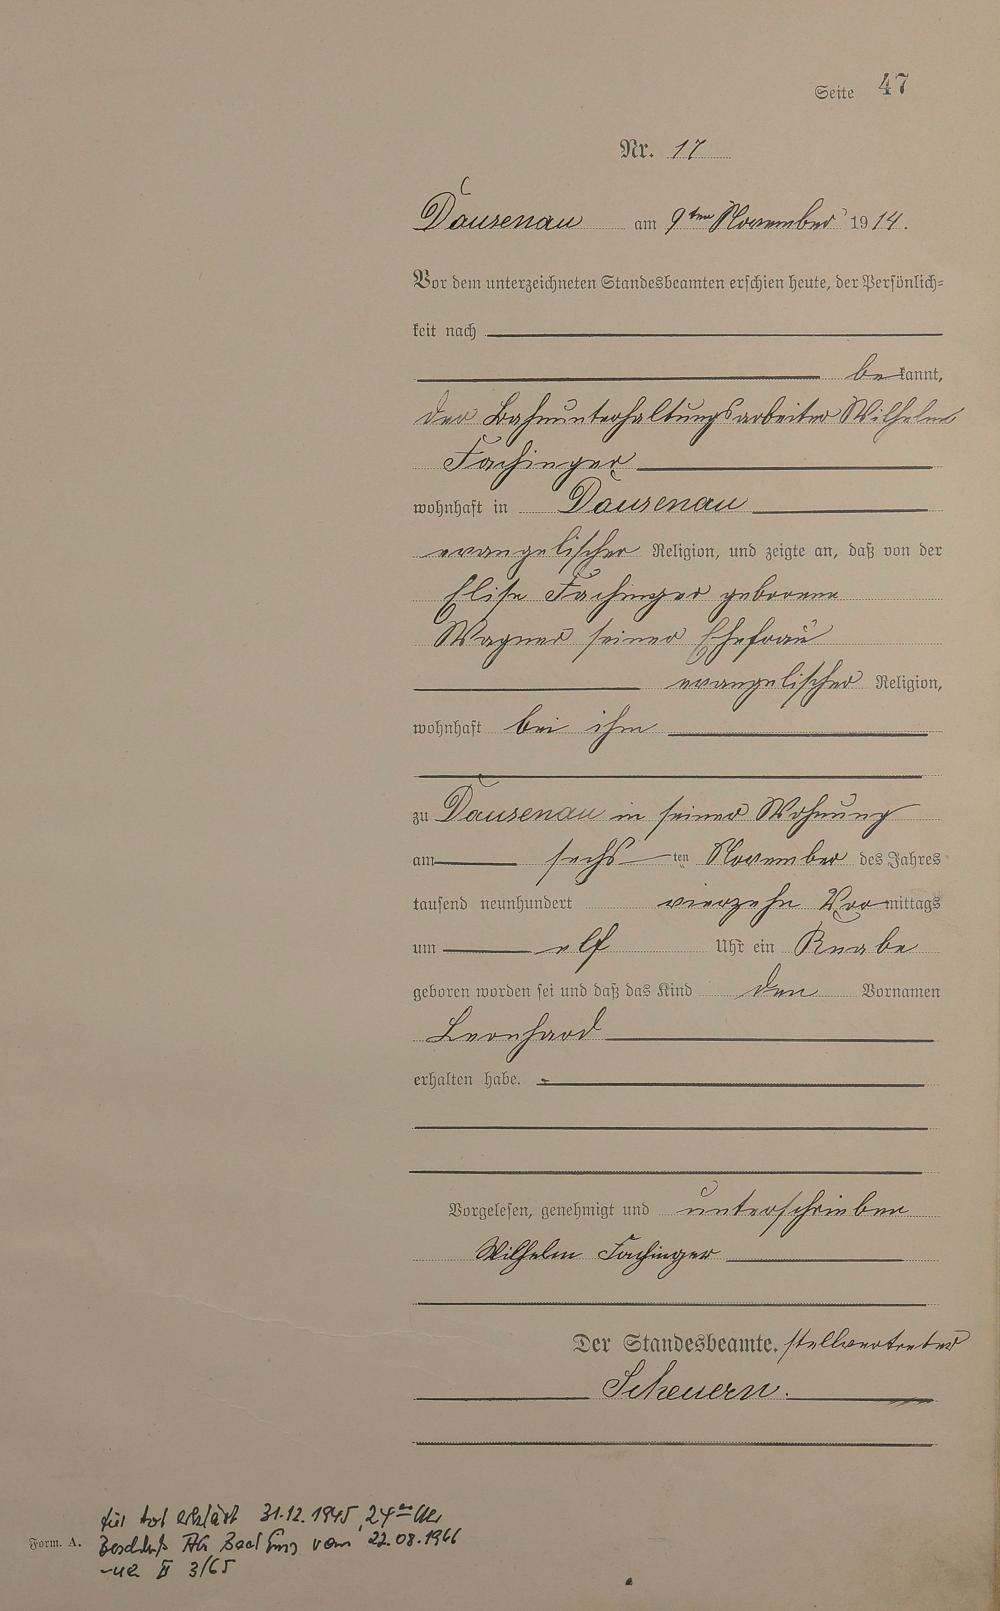 Seite 47
Nr. 17
Dausenau am 9ten November 1914.
Vor dem unterzeichneten Standesbeamten erschien heute, der Persönlich=
keit nach
bekannt,
der Bahnunterhaltungsarbeiter Wilhelm
Fachinger
wohnhaft in Dausenau
evangelischer Religion, und zeigte an, daß von der
Elise Fachinger geborene
Wagner seiner Ehefrau
evangelischer Religion,
wohnhaft bei ihm
zu Dausenau in seiner Wohnung
am sechs ten November des Jahres
tausend neunhundert vierzehn Vormittags
um elf Uhr ein Knabe
geboren worden sei und daß das Kind den Vornamen
Leonhard
erhalten habe.
Vorgelesen, genehmigt und unterschrieben
Wilhelm Fachinger
Der Standesbeamte. stellvertreter
Scheuern.
für tot erklärt 31.12.1945, 24 Uhr
Form. A. Beschluß AG Bad Ems vom 22.08.1966
II 3/65